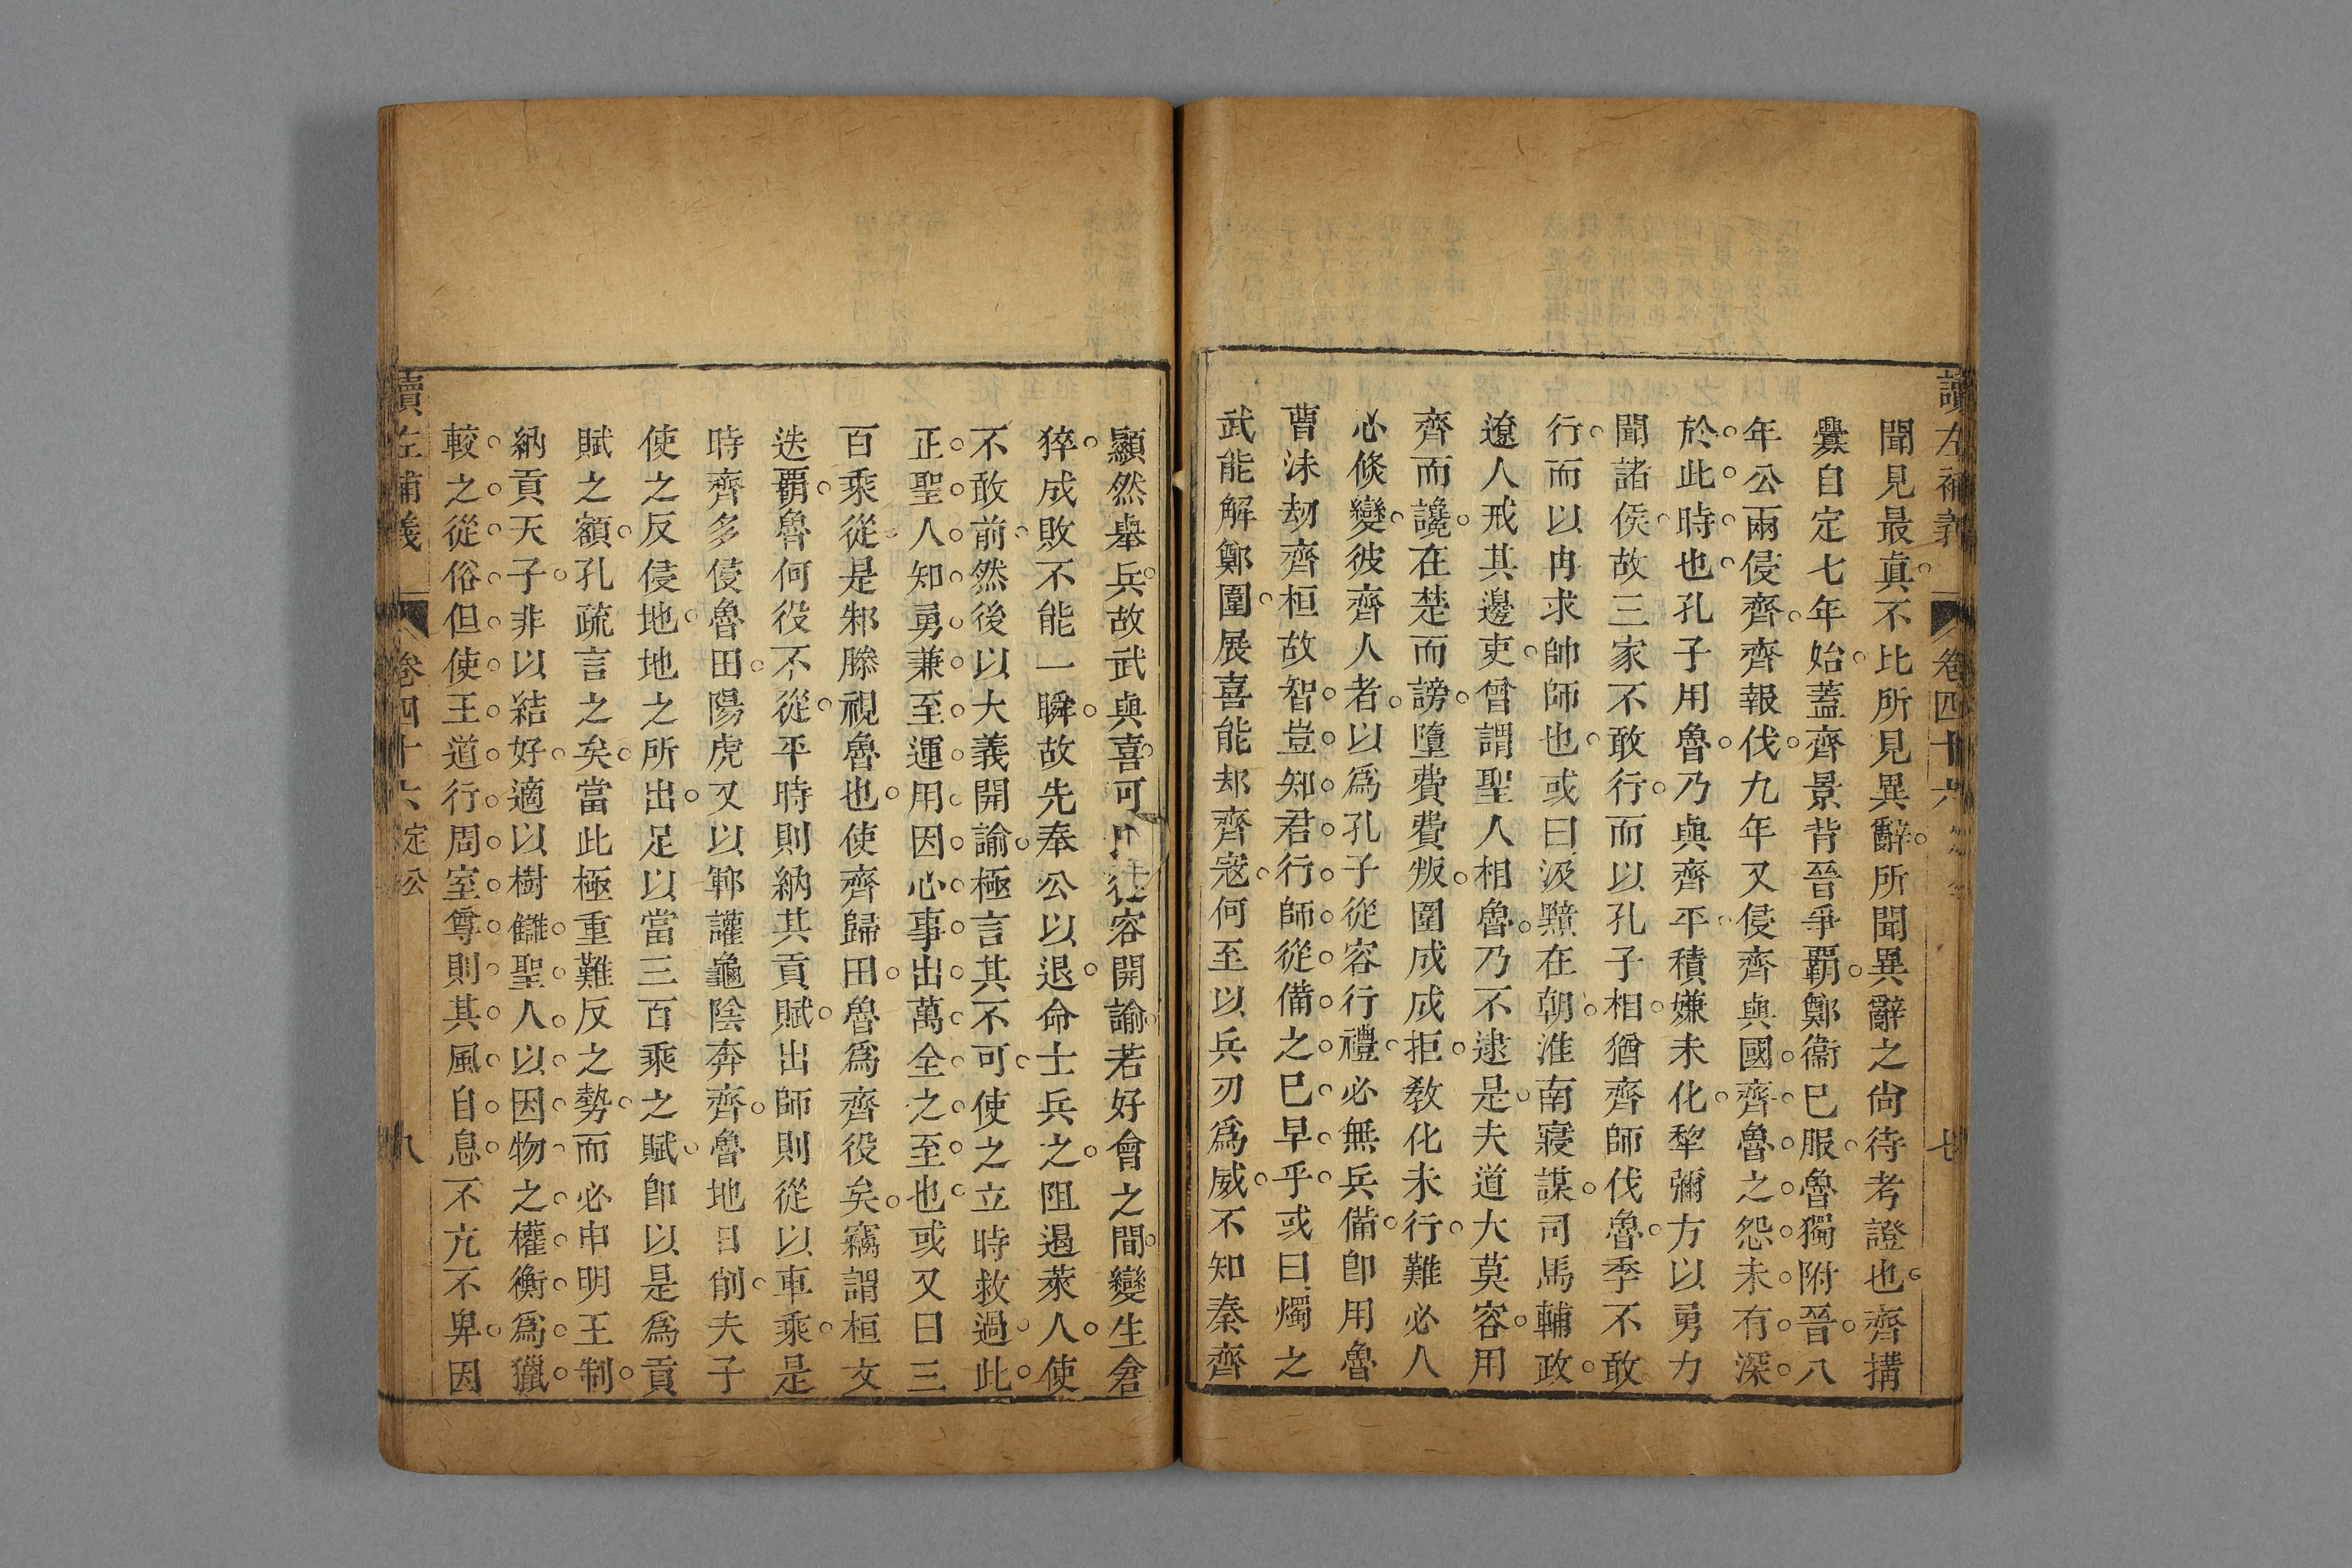 讀左補義 卷四十六 七
聞見最真不比所見異辭所聞異辭之尙待考證也齊搆
釁自定七年始蓋齊景背晉爭覇鄭衞已服魯獨附晉八
年公兩侵齊齊報伐九年又侵齊與國齊魯之怨未有深
於此時也孔子用魯乃與齊平積嫌未化犂彌方以勇力
聞諸侯故三家不敢行而以孔子相猶齊師伐魯季不敢
行而以冉求帥師也或曰汲黯在朝淮南寢謀司馬輔政
遼人戒其邊吏曾謂聖人相魯乃不逮是夫道大莫容用
齊而讒在楚而謗墮費費叛圍成成拒敎化未行難必八
必倏變彼齊人者以爲孔子從容行禮必無兵備卽用魯
曹沬刼齊桓故智豈知君行師從備之已早乎或曰燭之
武能解鄭圍展喜能却齊寇何至以兵刃爲威不知秦齊
顯然舉兵故武與喜可以從容開諭若好會之間變生倉
猝成敗不能一瞬故先奉公以退命士兵之阻遏萊人使
不敢前然後以大義開諭極言其不可使之立時救過此
正聖人知勇兼至運用因心事出萬全之至也或又曰三
百乘從是邾滕視魯也使齊歸田魯爲齊役矣竊謂桓文
迭覇魯何役不從平時則納其貢賦出師則從以車乘是
時齊多侵魯田陽虎又以鄆讙龜陰奔齊魯地日削夫子
使之反侵地地之所出足以當三百乘之賦卽以是爲貢
賦之額孔疏言之矣當此極重難反之勢而必申明王制
納貢天子非以結好適以樹讎聖人以因物之權衡爲獵
較之從俗但使王道行周室尊則其風自息不亢不卑因
讀左補義 卷四十六 定公 八